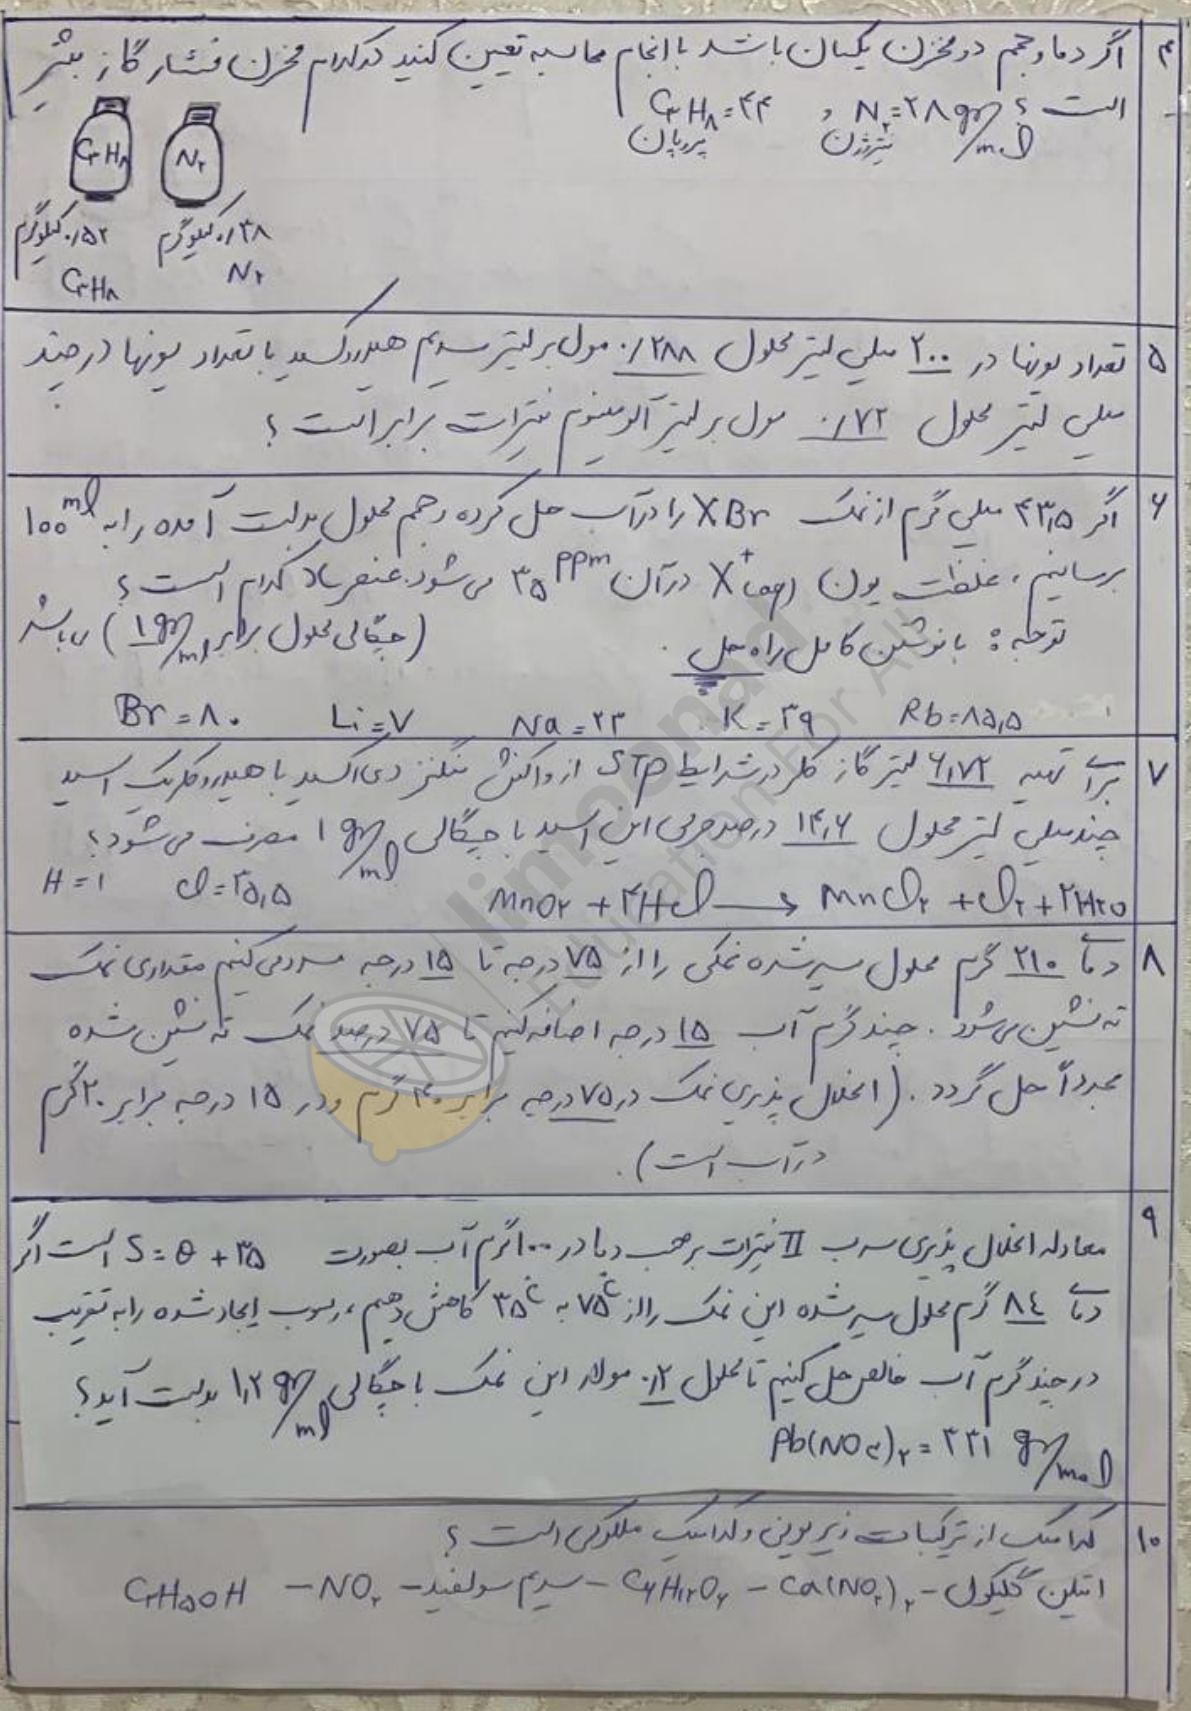 ۴ اگر دما و حجم دو مخزن یکسان باشد با انجام محاسبه تعیین کنید در کدام مخزن فشار گاز بیشتر
است ؟ N۲=۲۸ gr/mol , C۳H۸=۴۴
نیتروژن پروپان
C۳H۸ N۲
۰/۳۸ کیلوگرم ۰/۵۲ کیلوگرم
N۲ C۳H۸
۵ تعداد یونها در ۲۰۰ میلی لیتر محلول ۰/۲۸۸ مول بر لیتر سدیم هیدروکسید با تعداد یونها در چند
میلی لیتر محلول ۰/۷۲ مول بر لیتر آلومینیوم نیترات برابر است ؟
۶ اگر ۴۳٫۵ میلی گرم از نمک XBr را در آب حل کرده و حجم محلول بدست آمده را به 100 ml
برسانیم ، غلظت یون X+(aq) در آن ۳۵ ppm می شود. عنصر X کدام است ؟
توجه : با نوشتن کامل راه حل . (چگالی محلول برابر 1 gr/ml) می باشد
Br=۸۰ Li=۷ Na=۲۳ K=۳۹ Rb=۸۵٫۵
۷ برای تهیه ۶٫۷۲ لیتر گاز کلر در شرایط STP از واکنش منگنز دی اکسید با هیدروکلریک اسید
چند میلی لیتر محلول ۱۴٫۶ درصد جرمی این اسید با چگالی 1 gr/ml مصرف می شود ؟
H=۱ Cl=۳۵٫۵ MnO۲ + ۴HCl → MnCl۲ + Cl۲ + ۲H۲O
۸ دمای ۲۱۰ گرم محلول سیرشده نمکی را از ۷۵ درجه تا ۱۵ درجه سرد می کنیم مقداری نمک
ته نشین می شود . چند گرم آب ۱۵ درجه اضافه کنیم تا ۷۵ درصد نمک ته نشین شده
مجدداً حل گردد . (انحلال پذیری نمک در ۷۵ درجه برابر ۴۰ گرم و در ۱۵ درجه برابر ۲۰ گرم
در آب است) .
۹ معادله انحلال پذیری سرب II نیترات برحسب دما در ۱۰۰ گرم آب بصورت S=θ+۳۵ است اگر
دمای ۸۴ گرم محلول سیرشده این نمک را از ۷۵°C به ۳۵°C کاهش دهیم ، رسوب ایجاد شده را به تقریب
در چند گرم آب خالص حل کنیم تا محلول ۰/۲ مولار این نمک با چگالی ۱٫۲ gr/ml بدست آید ؟
Pb(NO۳)۲ = ۳۳۱ gr/mol
۱۰ کدامیک از ترکیبات زیر یونی و کدامیک مولکولی است ؟
اتیلن گلیکول - Ca(NO۳)۲ - C۶H۱۲O۶ - سدیم سولفید - NO۲ - C۲H۵OH
limoonad
Education For All